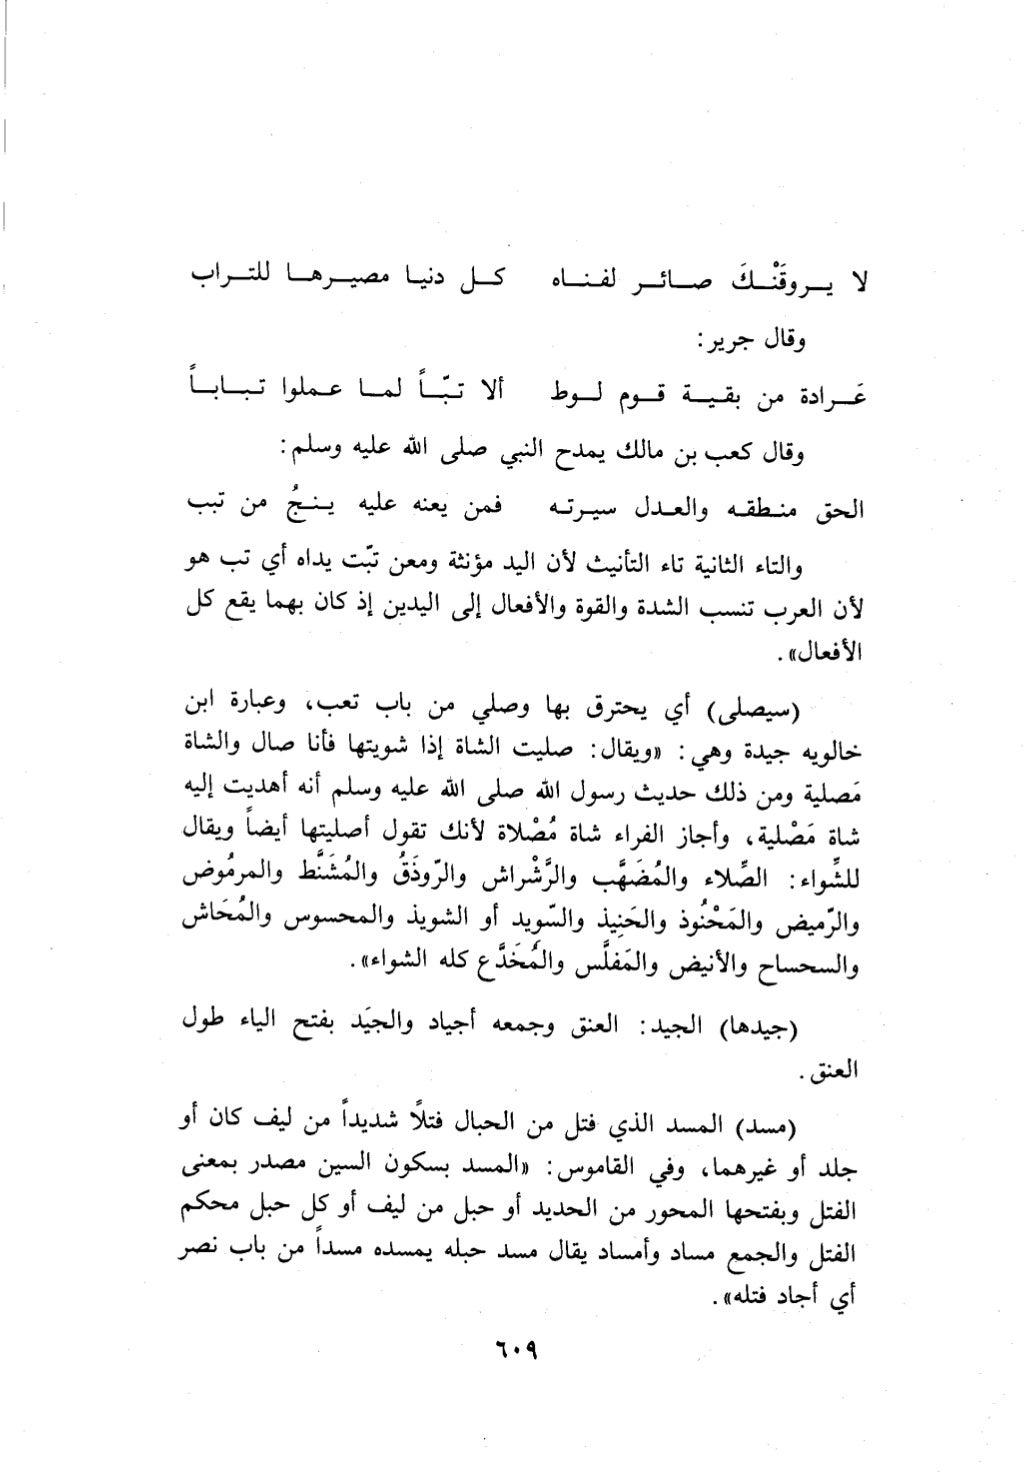 لا يـروقَنْـكَ صـائـر لفـناه كـل دنيـا مصيـرهـا للتـراب
وقال جرير:
عَـرادة من بقيـة قـوم لـوط ألا تبّـاً لمـا عـملوا تـبـابـاً
وقال كعب بن مالك يمدح النبي صلى الله عليه وسلم:
الحق منـطقـه والعـدل سيـرتـه فمن يعنه عليه ينـجُ من تبب
والتاء الثانية تاء التأنيث لأن اليد مؤنثة ومعن تبّت يداه أي تب هو
لأن العرب تنسب الشدة والقوة والأفعال إلى اليدين إذ كان بهما يقع كل
الأفعال».
(سيصلى) أي يحترق بها وصلي من باب تعب، وعبارة ابن
خالويه جيدة وهي: «ويقال: صليت الشاة إذا شويتها فأنا صال والشاة
مَصلية ومن ذلك حديث رسول الله صلى الله عليه وسلم أنه أهديت إليه
شاة مَصْلية، وأجاز الفراء شاة مُصْلاة لأنك تقول أصليتها أيضاً ويقال
للشِّواء: الصِّلاء والمُضَهَّب والرَّشْراش والرّوذَقُ والمُشَنَّط والمرمُوض
والرّميض والمَحْنُوذ والحَنِيذ والسّويد أو الشويذ والمحسوس والمُحَاش
والسحساح والأنيض والمَفلَّس والمُخَدَّع كله الشواء».
(جيدها) الجيد: العنق وجمعه أجياد والجيَد بفتح الياء طول
العنق.
(مسد) المسد الذي فتل من الحبال فتلًا شديداً من ليف كان أو
جلد أو غيرهما، وفي القاموس: «المسد بسكون السين مصدر بمعنى
الفتل وبفتحها المحور من الحديد أو حبل من ليف أو كل حبل محكم
الفتل والجمع مساد وأمساد يقال مسد حبله يمسده مسداً من باب نصر
أي أجاد فتله».
٦٠٩